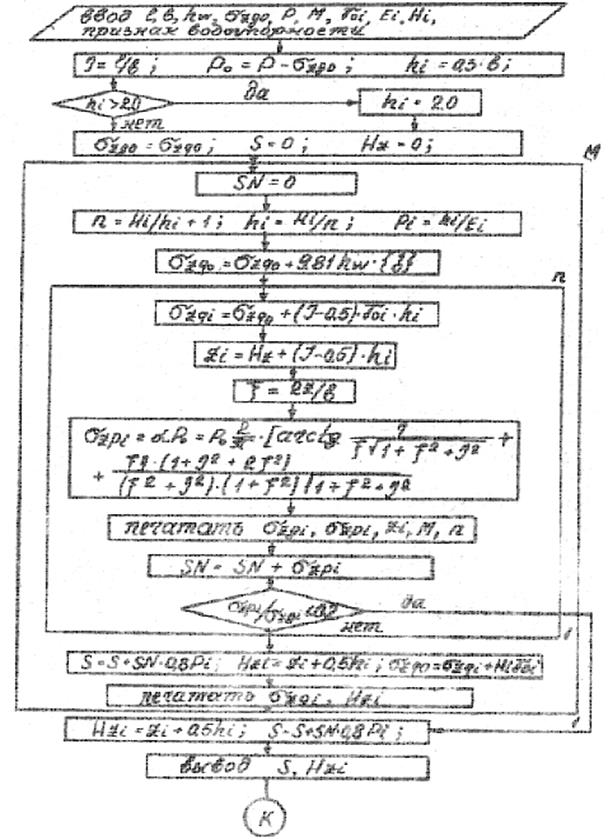 ввод l, в, hw, σzgo, P, M, γoi, Ei, Hi,
признак водоупорности
η = l/в ; Po = P - σzgo ; hi = 0,3·в ;
hi > 2.0
да
hi = 2.0
нет
σzgo = σzgo ; S = 0 ; Hz = 0 ;
M
SN = 0
n = Hi/hi + 1 ; hi = Hi/n ; Pi = hi/Ei
σzgo = σzgo + 9.81 hw ·
n
σzgi = σzgo + (J-0.5)·γoi·hi
zi = Hz + (J-0.5)·hi
ξ = 2z/в
σzpi = αPo = Po 2/π ·[arctg η / ξ√1 + ξ² + η² +
+ ξη·(1 + η² + 2ξ²) / (ξ² + η²)·(1 + ξ²)√1 + ξ² + η²
печатать σzgi, σzpi, zi, M, n
SN = SN + σzpi
σzpi/σzgi < 0,2
да
нет
S = S + SN·0,8Pi ; Hzi = zi + 0,5hi ; σzgo = σzgi + Hiγoi
печатать σzgi, Hzi
Hzi = zi + 0,5hi ; S = S + SN·0,8Pi ;
вывод S, Hzi
К